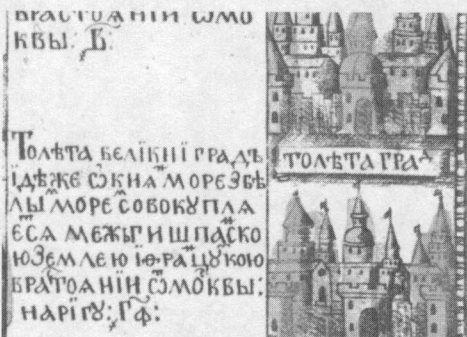 ВРАСТОѦНІИ ѾМО
КВЫ: В҃:
ТОЛѢТА ВЕЛІКИІ ГРАДЪ
ІДѢЖЕ МОРЕ ЗБѢ
ЛЫ МОРЕ СОВОКꙊПЛѦ
ЕТСѦ МЕЖЪГИШПАСКО
Ю ЗЕМЛЕЮ ІѲРАЦꙊКОЮ
ВРАТОѦНІИ ѾМОКВЫ:
НАРІГꙊ: ГФ҃:
ТОЛѢТА ГРАД